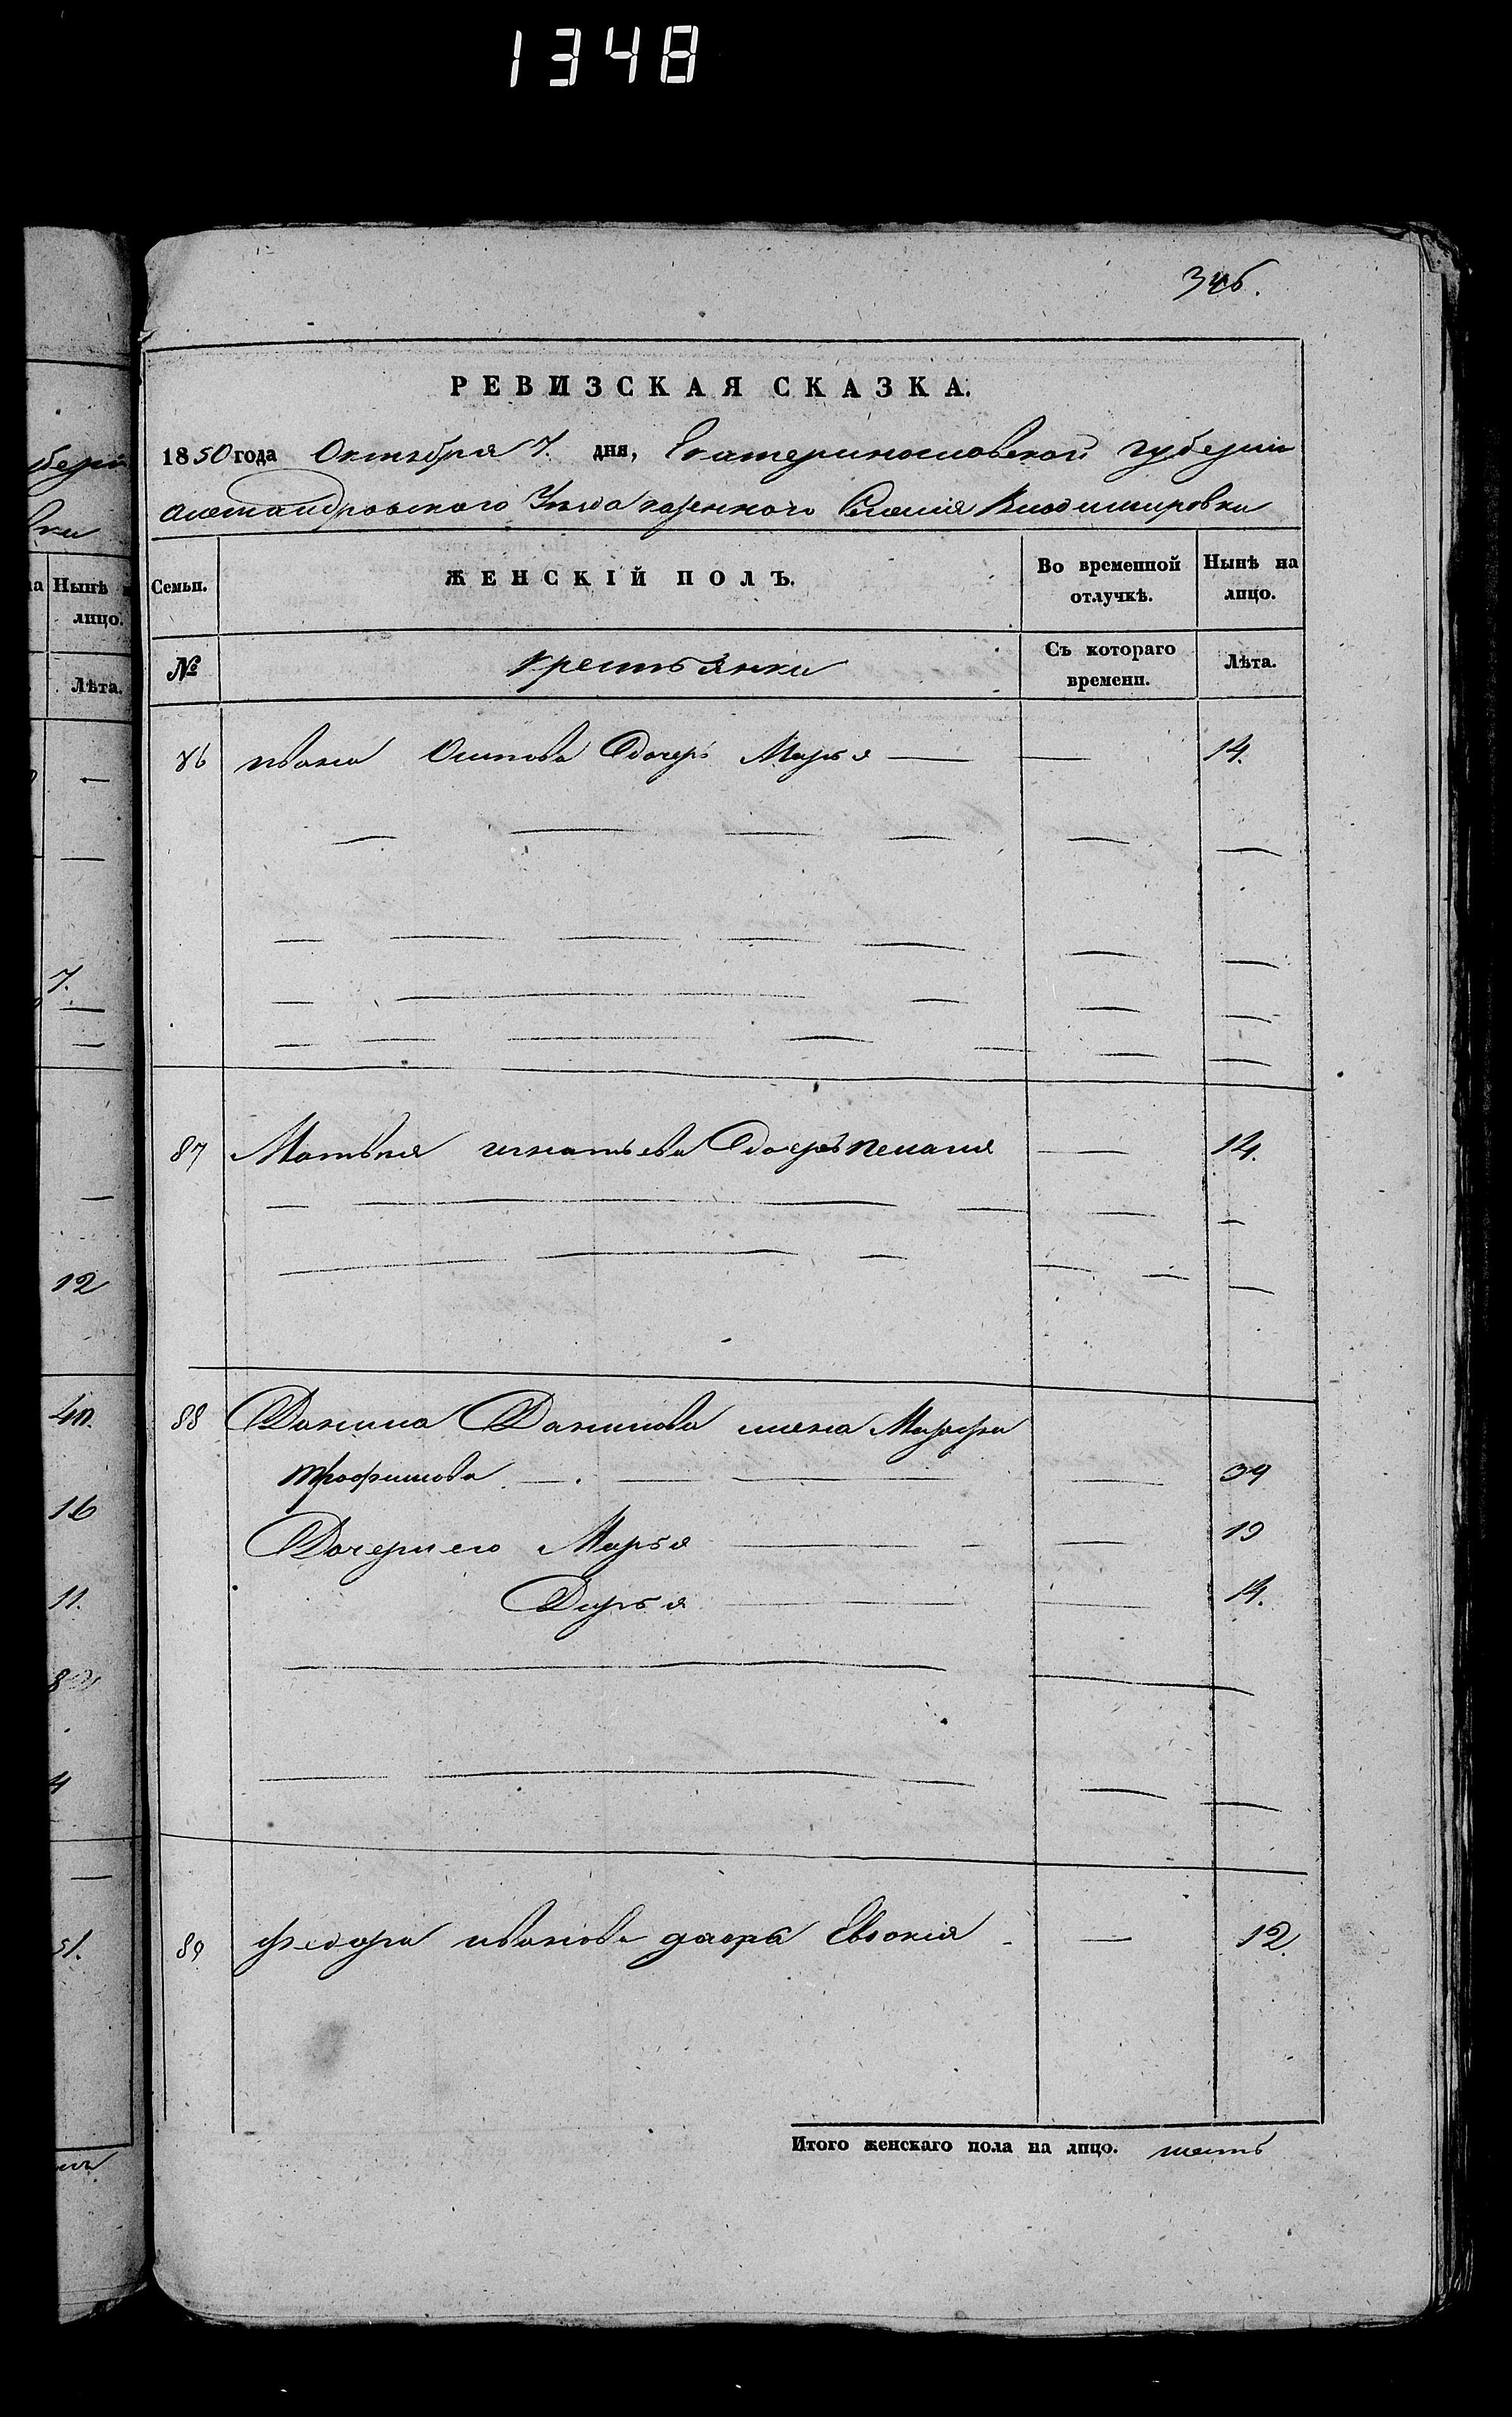 1348
346.
РЕВИЗСКАЯ СКАЗКА.
1850 года Октября 7. дня, Екатеринославской губерніи
Александровского Уезда казенного Селенія Владимировки
Семьи. ЖЕНСКІЙ ПОЛЪ. Во временной отлучкѣ. Нынѣ на лицо.
№ крестьянки Съ котораго времени. Лѣта.
86 ивана Осипова Дочерь Марья — — 14.
87 Матвѣя игнатьева Дочерь пелагия — 14.
88 Данила Данилова жена Марфа
трофимова — — — 39
Дочери его Марья — — 19
Дарья — — 14.
89 Федора иванова дочерь Евдокия — 12.
Итого женскаго пола на лицо. шесть
бери
вки
Нынѣ
лицо.
Лѣта.
7.
12
40.
16
11.
8
4
51.